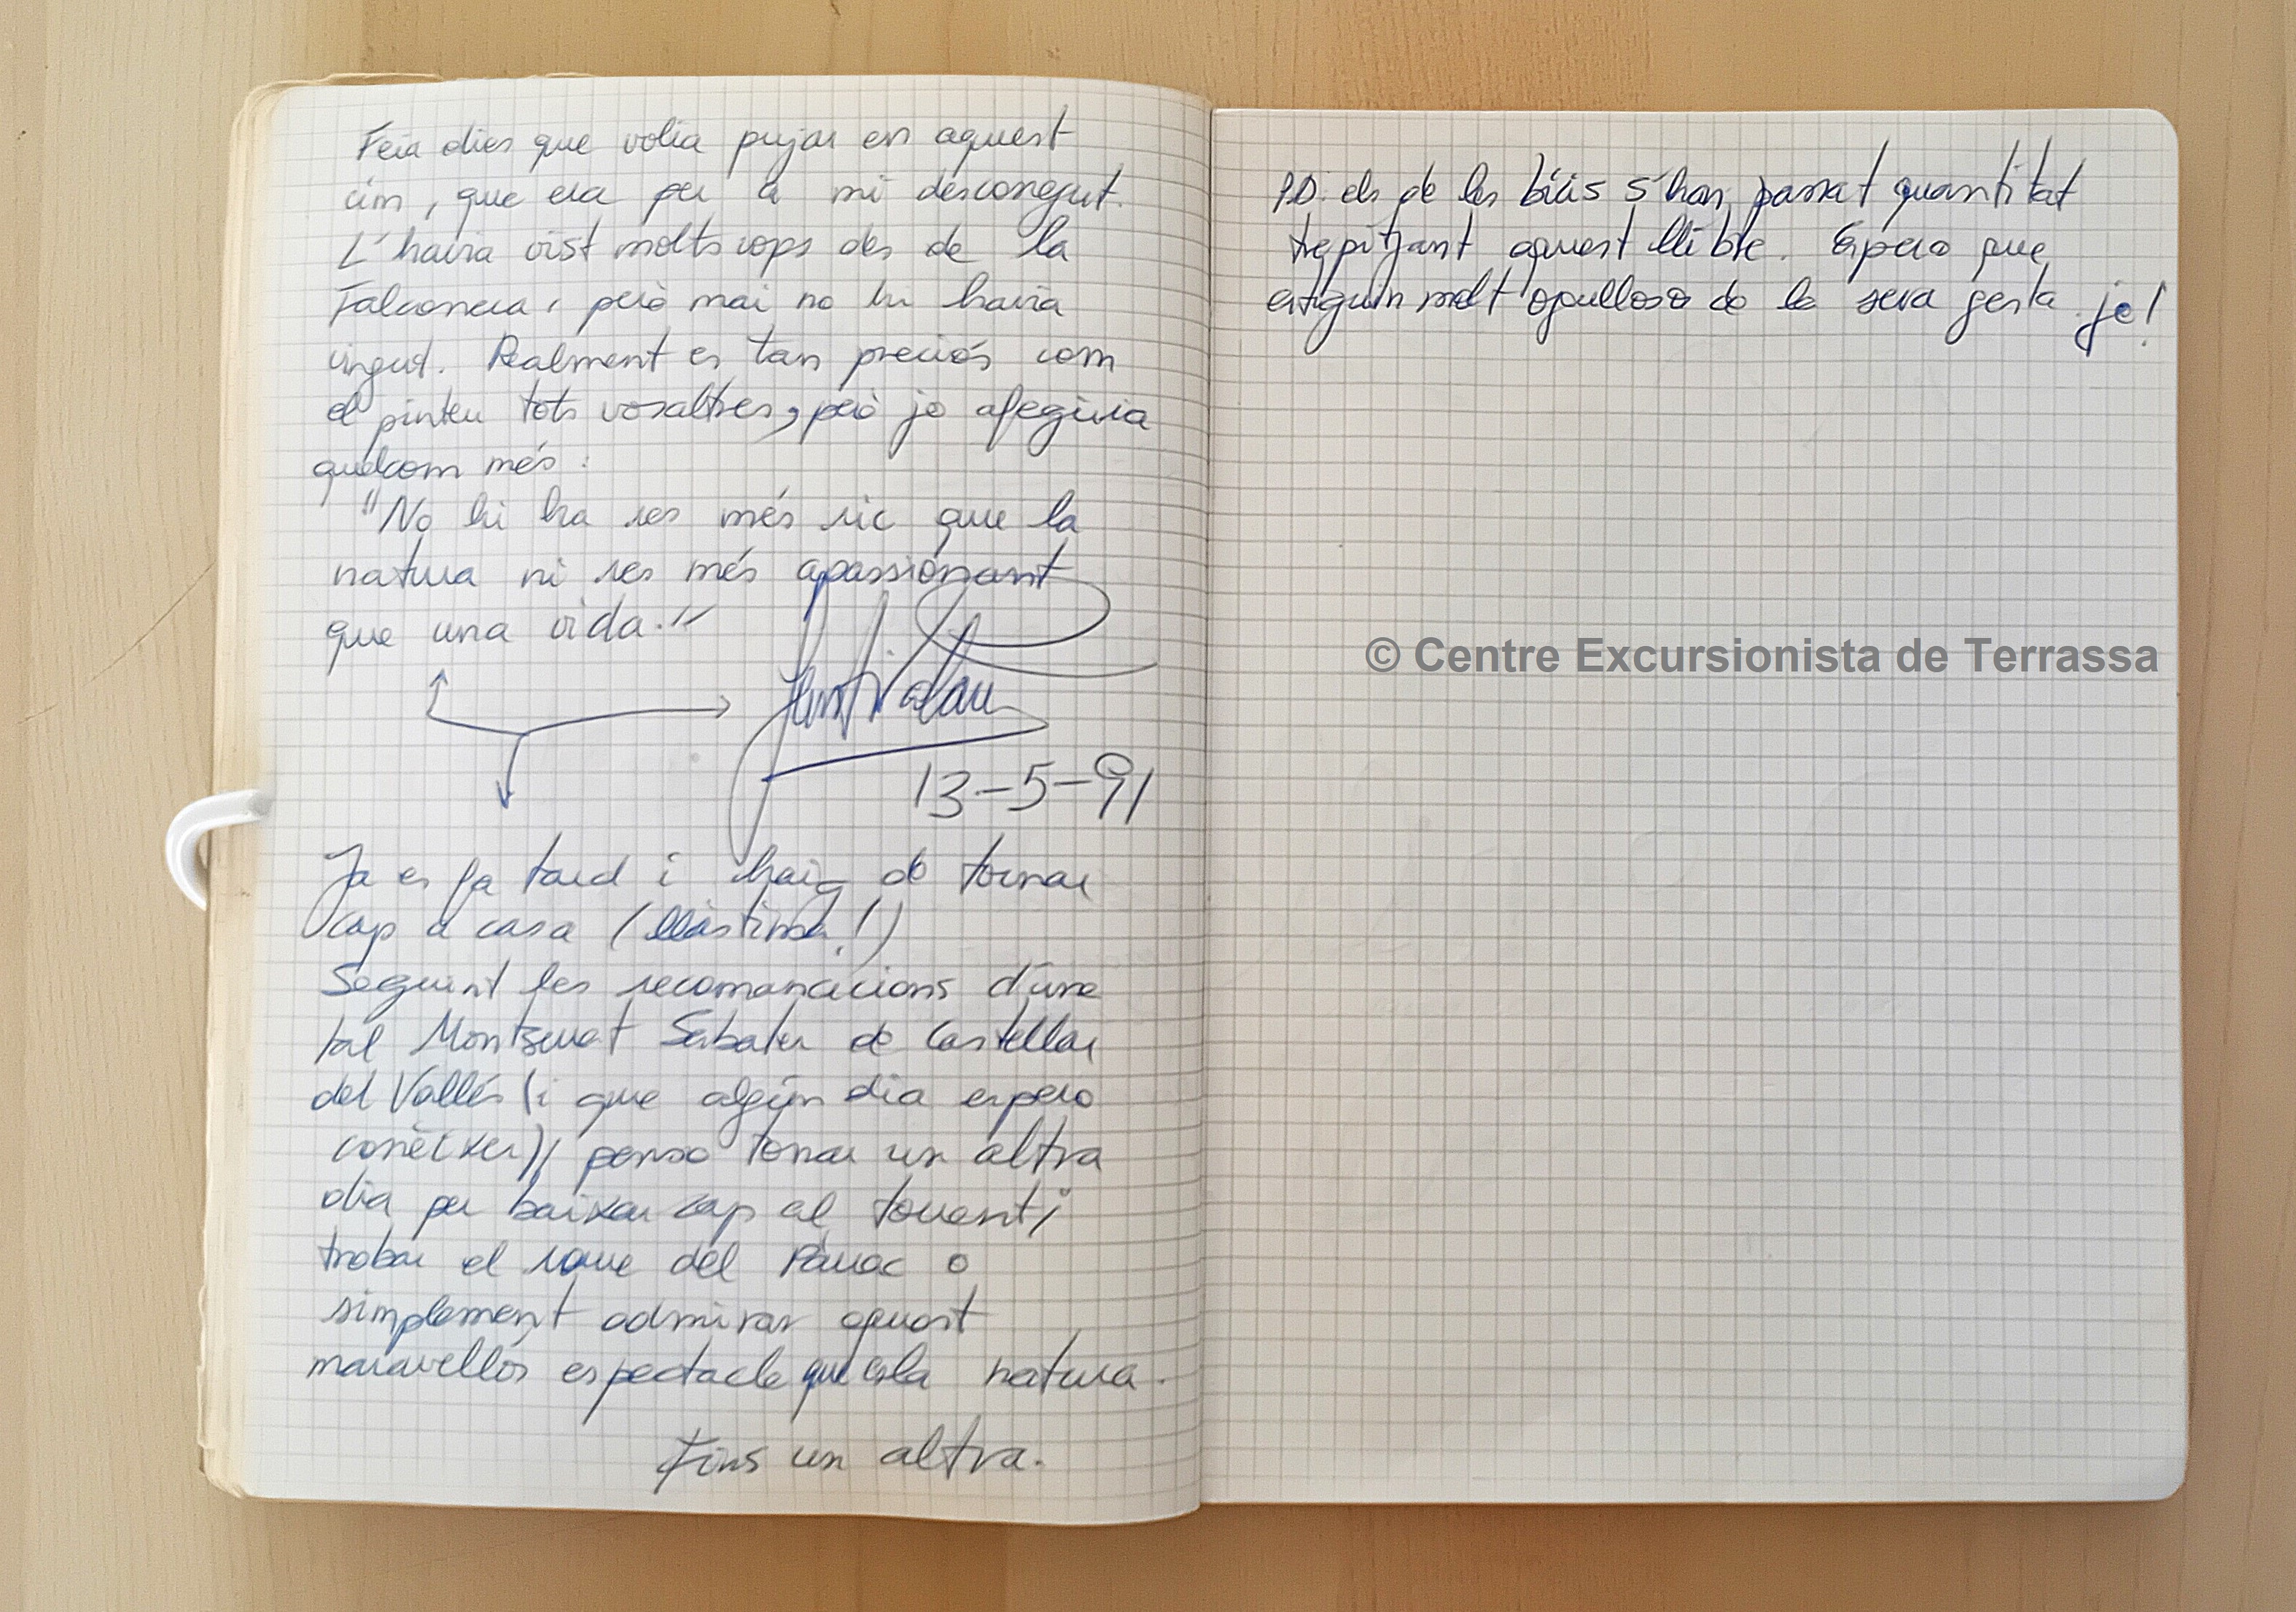 Feia dies que volia pujar en aquest
cim, que era per a mi desconegut.
L'havia vist molts cops des de la
Falconera, però mai no hi havia
vingut. Realment es tan preciós com
el pinteu tots vosaltres, però jo afegiria
quelcom més:
"No hi ha res més ric que la
natura ni res més apassionant
que una vida."
13-5-91
Ja es fa tard i haig de tornar
cap a casa (llàstima!)
Seguint les recomanacions d'una
tal Montserrat Sabater de Castellar
del Vallés (i que algún dia espero
conèixer), penso tornar un altra
dia per baixar cap al torrent i
trobar el roure del Pàrroc o
simplement admirar aquest
maravellós espectacle que es la natura.
Fins un altra.
P.D. els de les bicis s'han passat quantitat
trepitjant aquest llibre. Espero que
estiguin molt opullosos de la seva gesta. je!
© Centre Excursionista de Terrassa